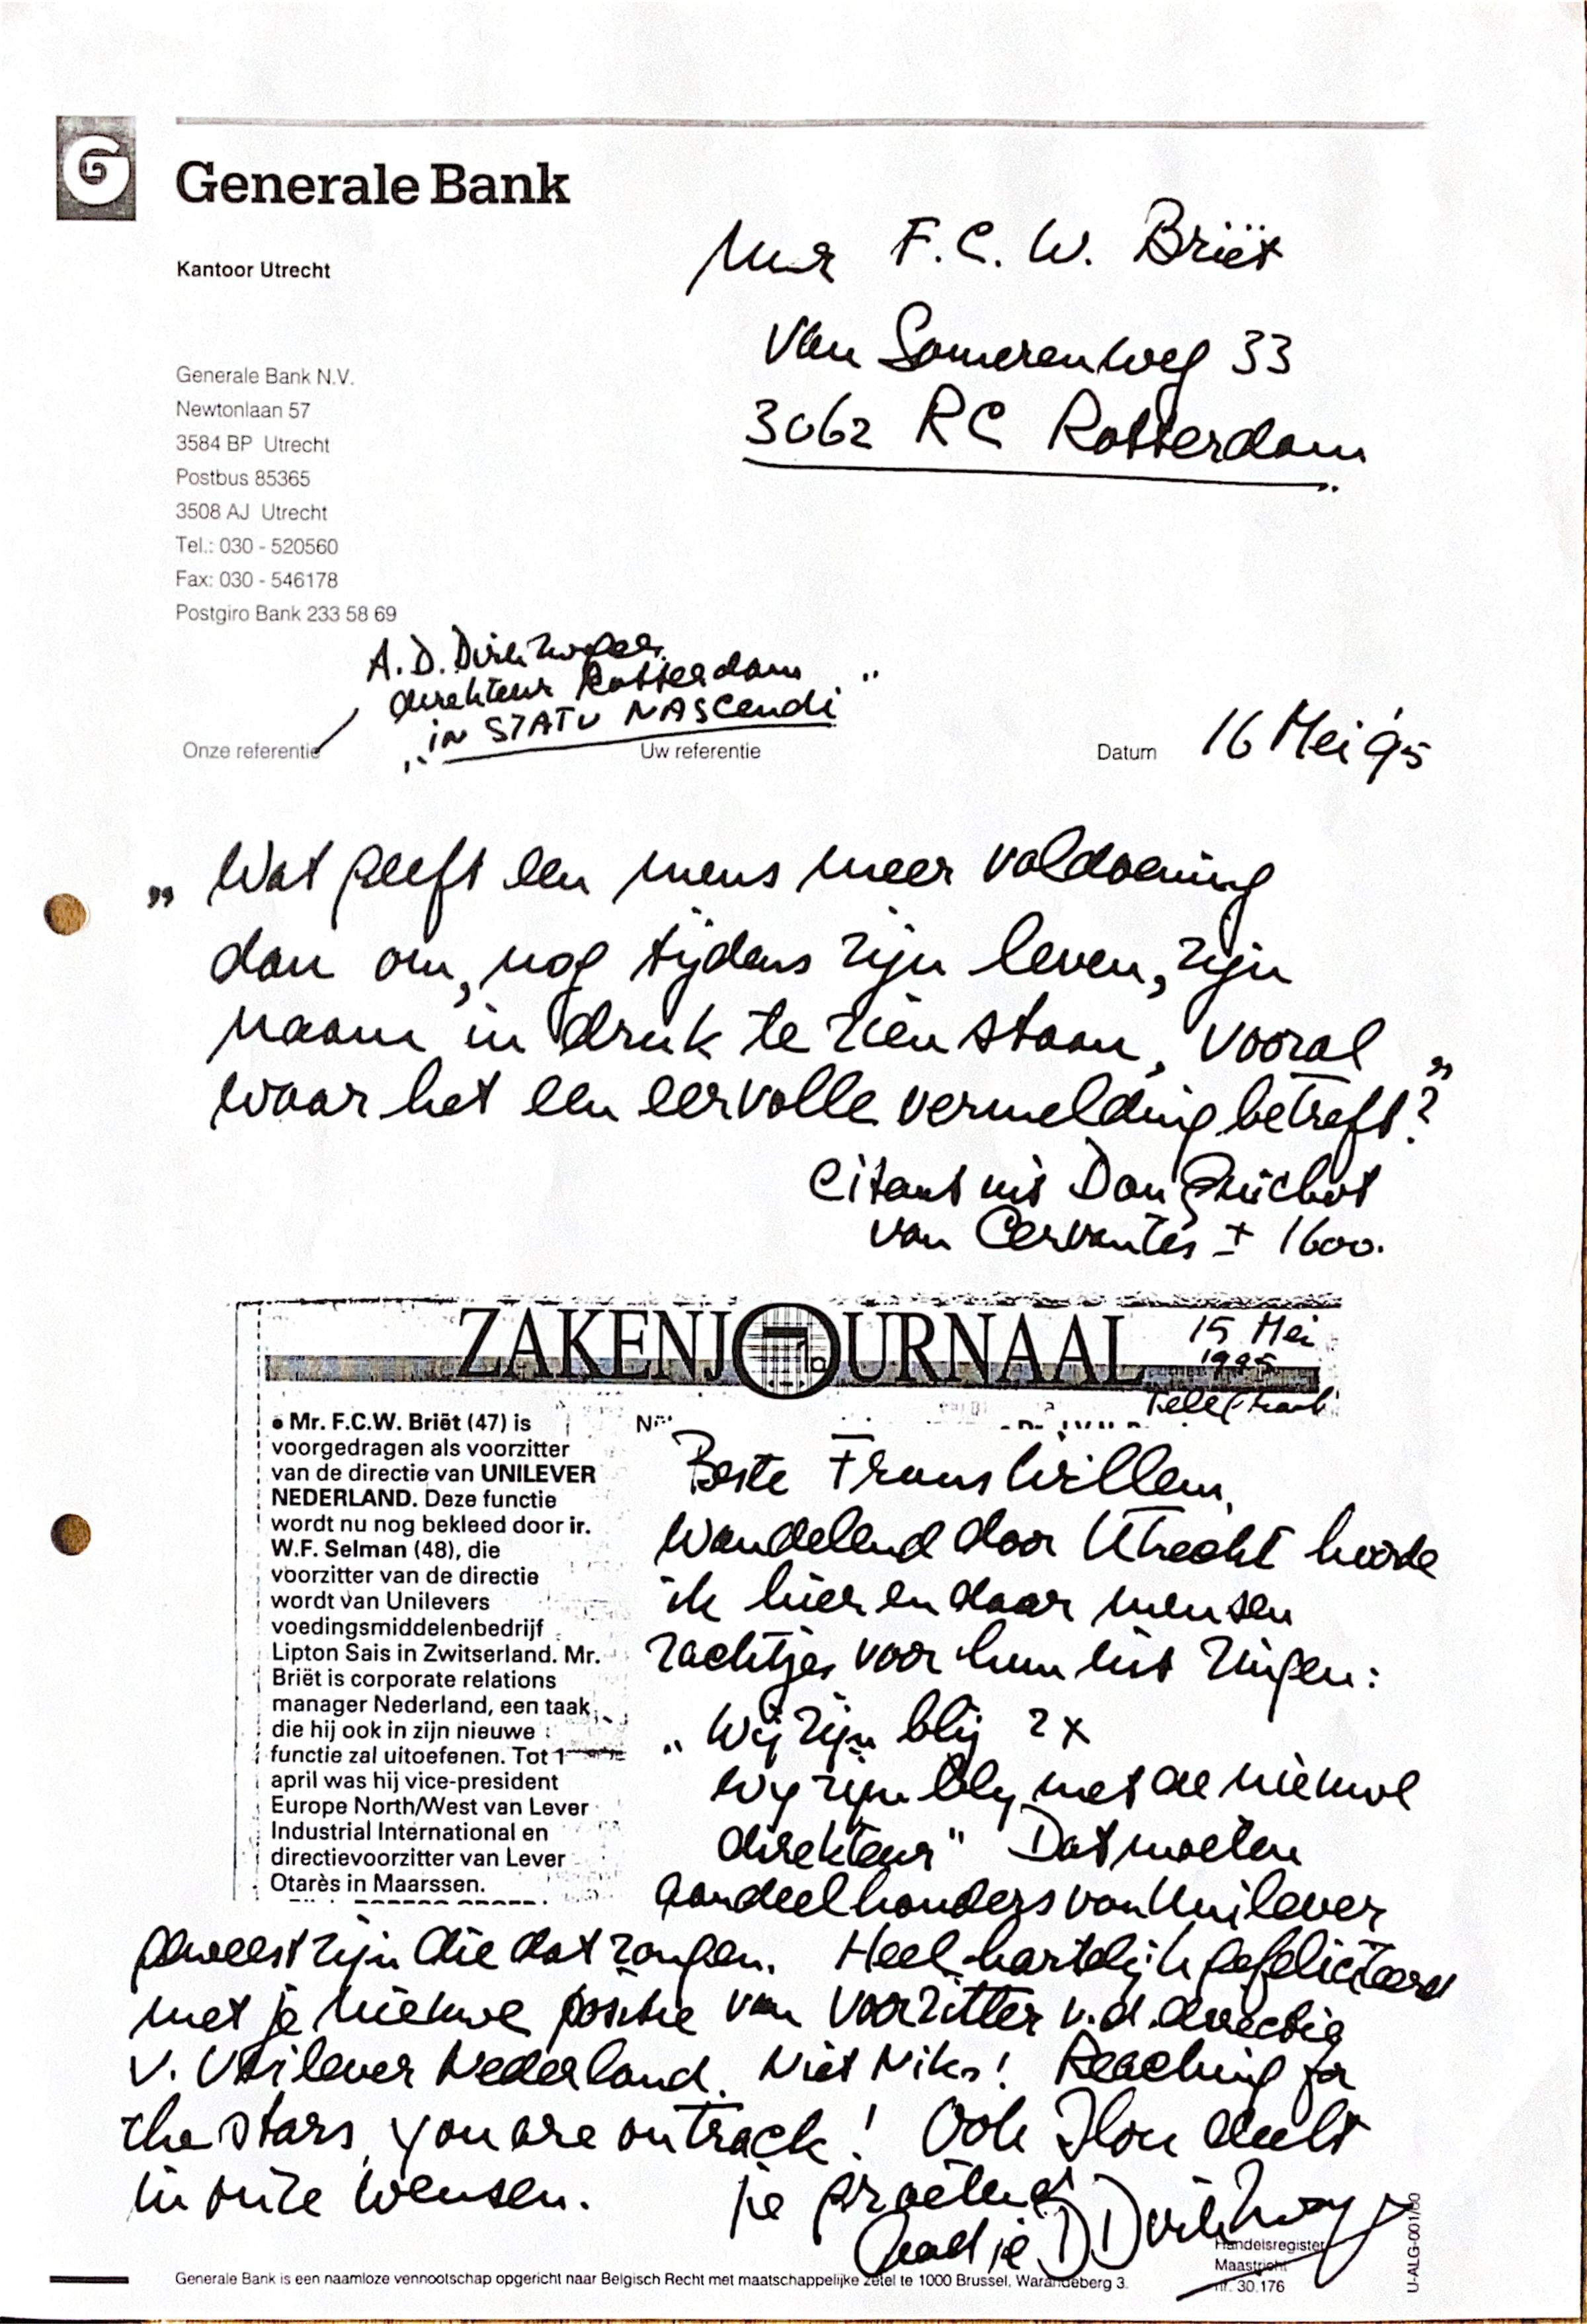 G
Generale Bank
Kantoor Utrecht
Mr F.C.W. Briët
van Somerenweg 33
3062 RC Rotterdam
Generale Bank N.V.
Newtonlaan 57
3584 BP Utrecht
Postbus 85365
3508 AJ Utrecht
Tel.: 030 - 520560
Fax: 030 - 546178
Postgiro Bank 233 58 69
A.D.
direkteur Rotterdam
"in STATU NASCendi"
Onze referentie
Uw referentie
Datum
16 Mei '95
„Wat geeft een mens meer voldoening
dan om, nog tijdens zijn leven, zijn
naam in druk te zien staan, vooral
waar het een eervolle vermelding betreft?"
Citaat uit Don Quichot
van Cervantes ± 1600.
ZAKENJOURNAAL
15 Mei
1995
Telegraaf
• Mr. F.C.W. Briët (47) is
voorgedragen als voorzitter
van de directie van UNILEVER
NEDERLAND. Deze functie
wordt nu nog bekleed door ir.
W.F. Selman (48), die
voorzitter van de directie
wordt van Unilevers
voedingsmiddelenbedrijf
Lipton Sais in Zwitserland. Mr.
Briët is corporate relations
manager Nederland, een taak
die hij ook in zijn nieuwe
functie zal uitoefenen. Tot 1
april was hij vice-president
Europe North/West van Lever
Industrial International en
directievoorzitter van Lever
Otarès in Maarssen.
Beste Frans Willem,
Wandelend door Utrecht hoorde
ik hier en daar mensen
zachtjes voor hun uit zingen:
„Wij zijn blij 2x
wij zijn blij met de nieuwe
direkteur" Dat moeten
aandeelhouders van Unilever
geweest zijn die dat zongen. Heel hartelijk gefeliciteerd
met je nieuwe positie van voorzitter v.d. directie
v. Unilever Nederland. Niet Niks! Reaching for
the stars, you are on track! Ook Ilon deelt
in onze wensen. je groetend
Aadje D
Handelsregister
Maastricht
nr. 30.176
U-ALG-001/00
Generale Bank is een naamloze vennootschap opgericht naar Belgisch Recht met maatschappelijke zetel te 1000 Brussel, Warandeberg 3.